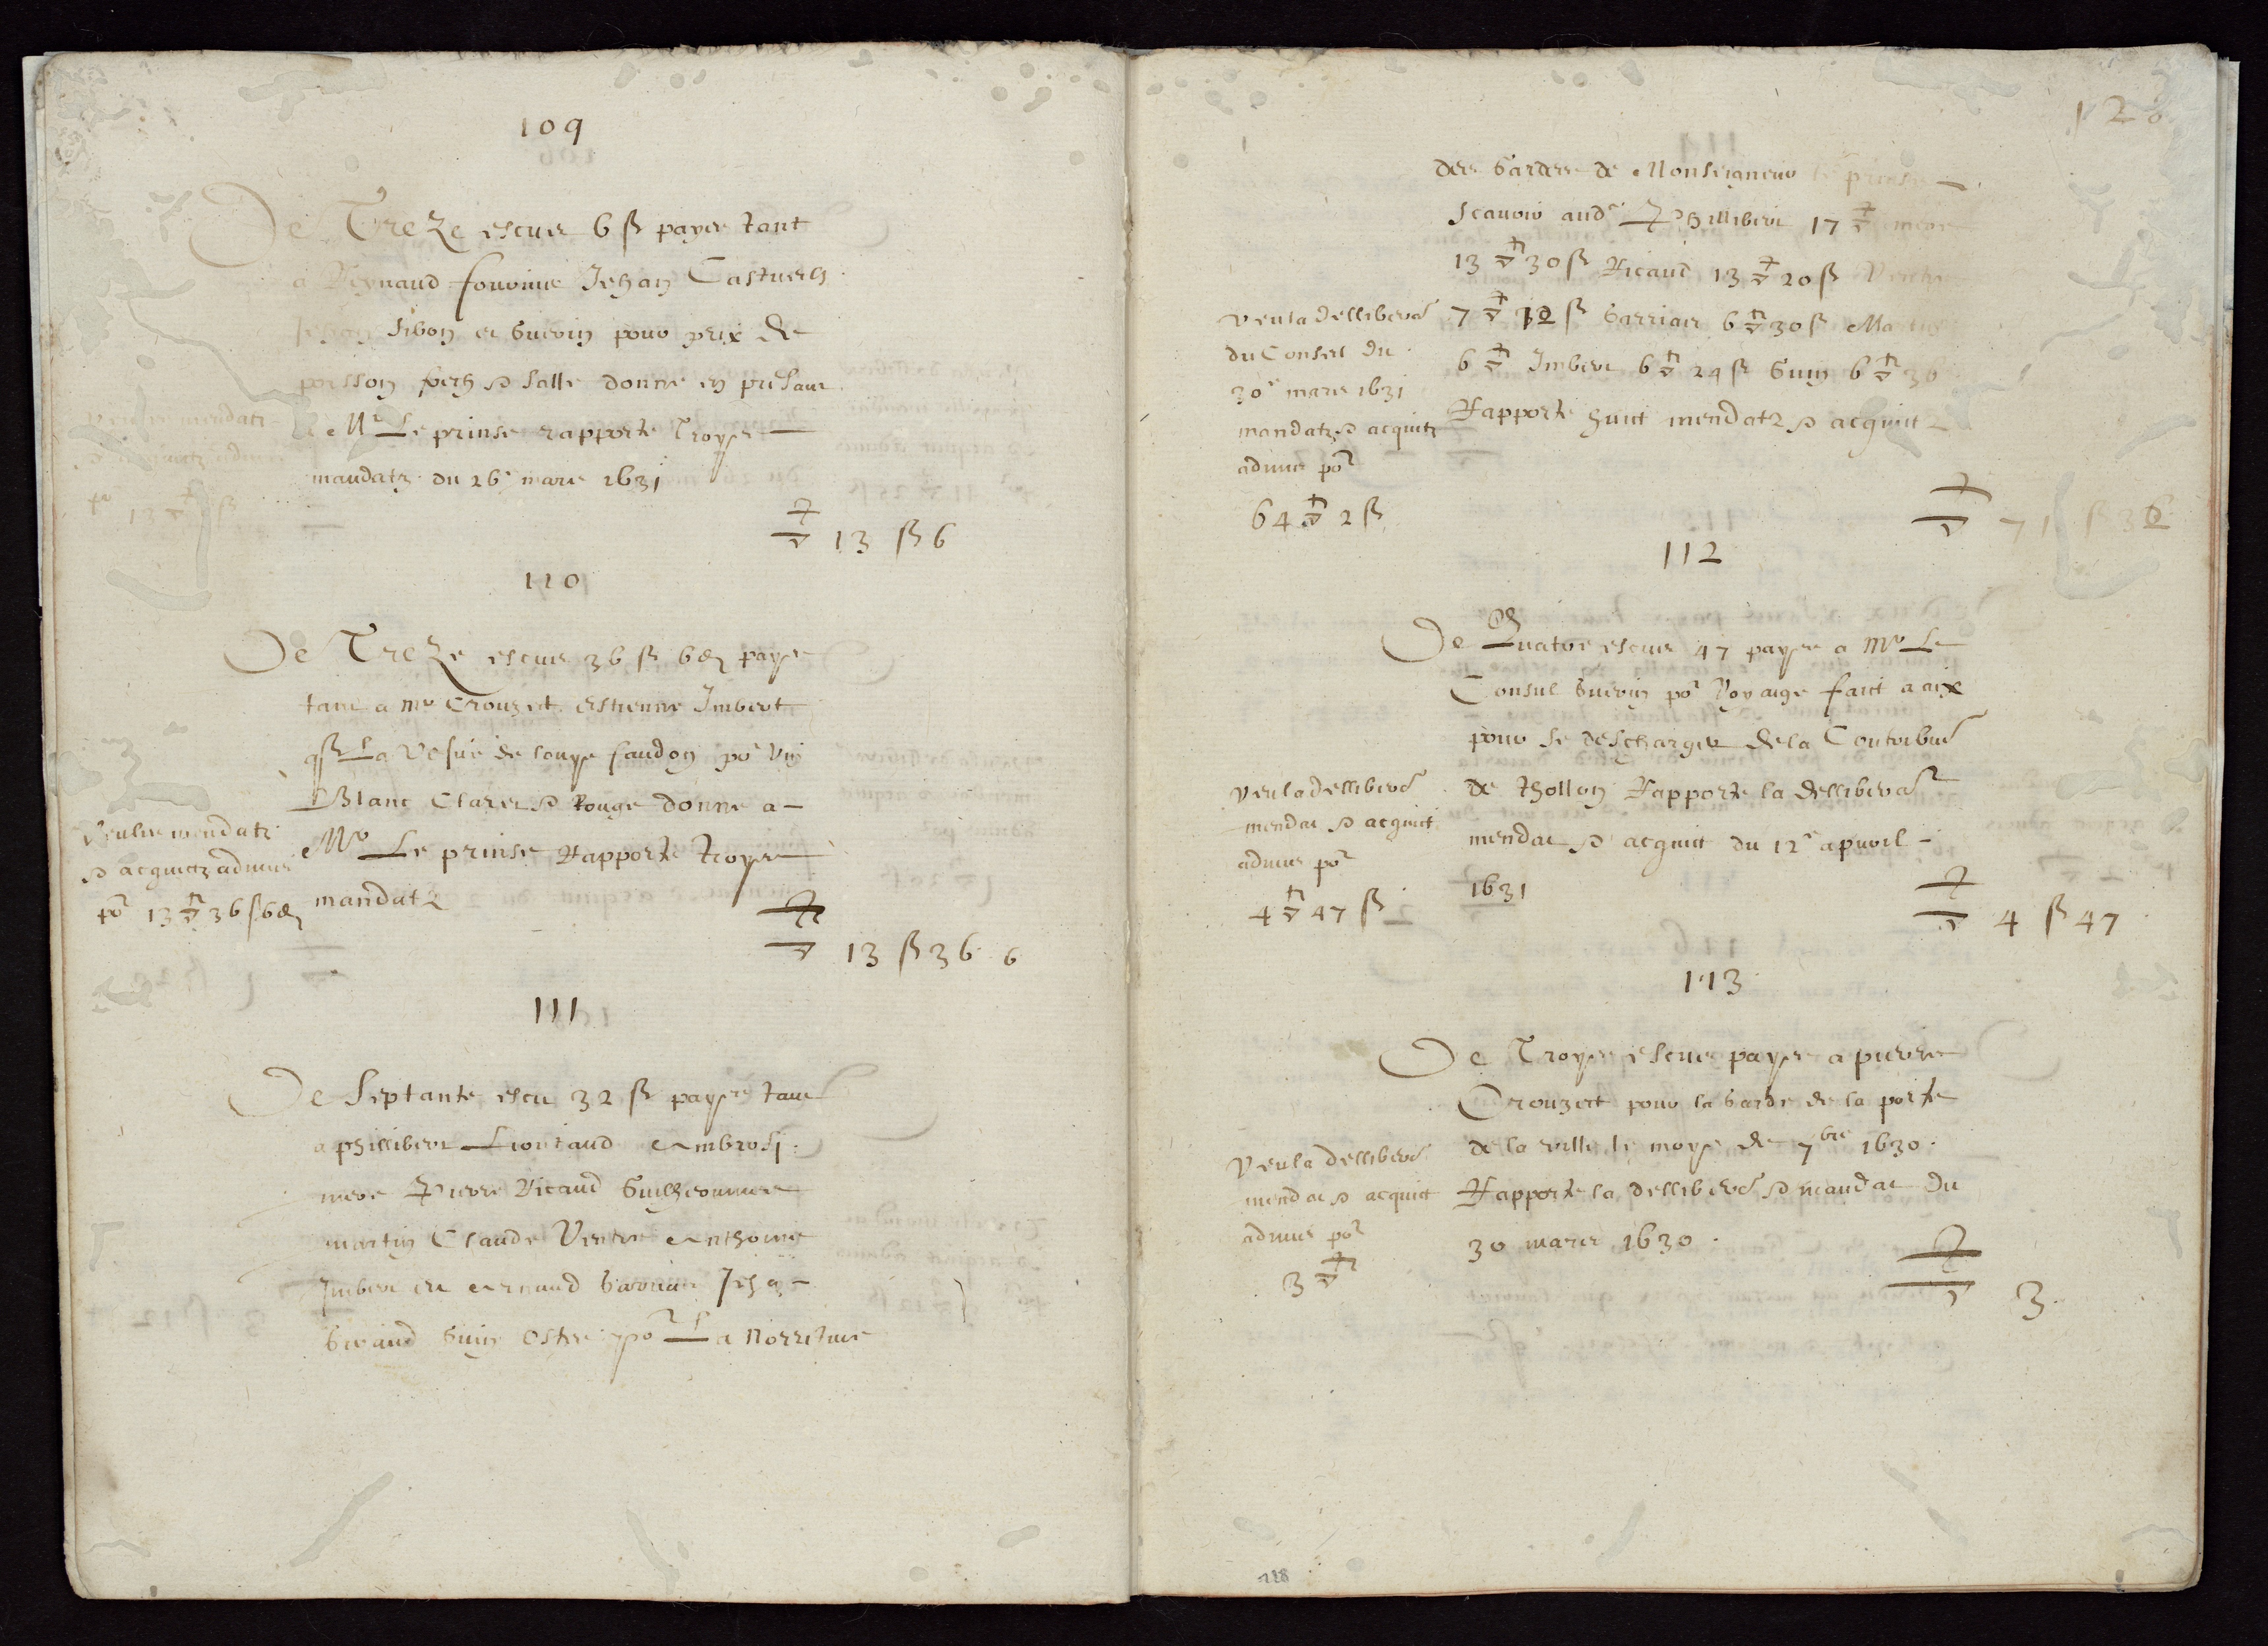 109
De Treze escus 6 ß payes tant
a Reynaud Jehan
Jehan Sibon et Guerin pour prix de
poisson & salle donne en presant
a Mr Le prinse rapporte troys
mandatz du 26e mars 1631
Veu les mendatz
& acquictz admis
por 13 ▽ 6 ß
▽ 13 ß 6
110
De Treze escus 36 ß 6 d payes
tant a mr Crouzet Estienne Imbert
La vefue de Louys faudon por vin
Blanc Claret & Rouge donne a
Mr Le prinse Rapporte troys
mandatz
Veu les mendatz
& acquictz admis
por 13 ▽ 36 ß 6 d
▽ 13 ß 36 6
111
De Septante escu 32 ß payes tant
a phillibert Liontaud Ambrosi
mere Pierre Ricaud
martin Claude Ventre Anthoine
Imbert et Arnaud Garrian Jehan
Giraud Guin ostes por La norriture
128
des Gardes de Monseigneur le prinse
Scauoir aud. Phillibert 17 ▽ mere
13 ▽ 30 ß Ricaud 13 ▽ 20 ß Ventre
7 ▽ 12 ß Garrian 6 ▽ 30 ß Martin
6 ▽ Imbert 6 ▽ 24 ß Guin 6 ▽ 30
Rapporte huict mendatz & acquictz
Veu la dellibera
du Conseil du
30e mars 1631
mandatz & acquitz
admis por
64 ▽ 2 ß
▽ 71 ß 32
112
De Quatre escus 47 payes a Mr Le
Consul Guerin por Voyaige faict a aix
pour se descharger de la Contribuon
de thollon Rapporte la dellibera
mendat & acquit du 12e apuril
1631
Veu la dellibera
mendat & acquict
admis por
4 ▽ 47 ß
▽ 4 ß 47
113
De Troys escus payes a pierre
Crouzet pour la Garde de la porte
de la ville le moys de 7bre 1630
Rapporte la dellibera & mandat du
30 mars 1630
Veu la dellibera
mendat & acquit
admis por
3 ▽
▽ 3
128